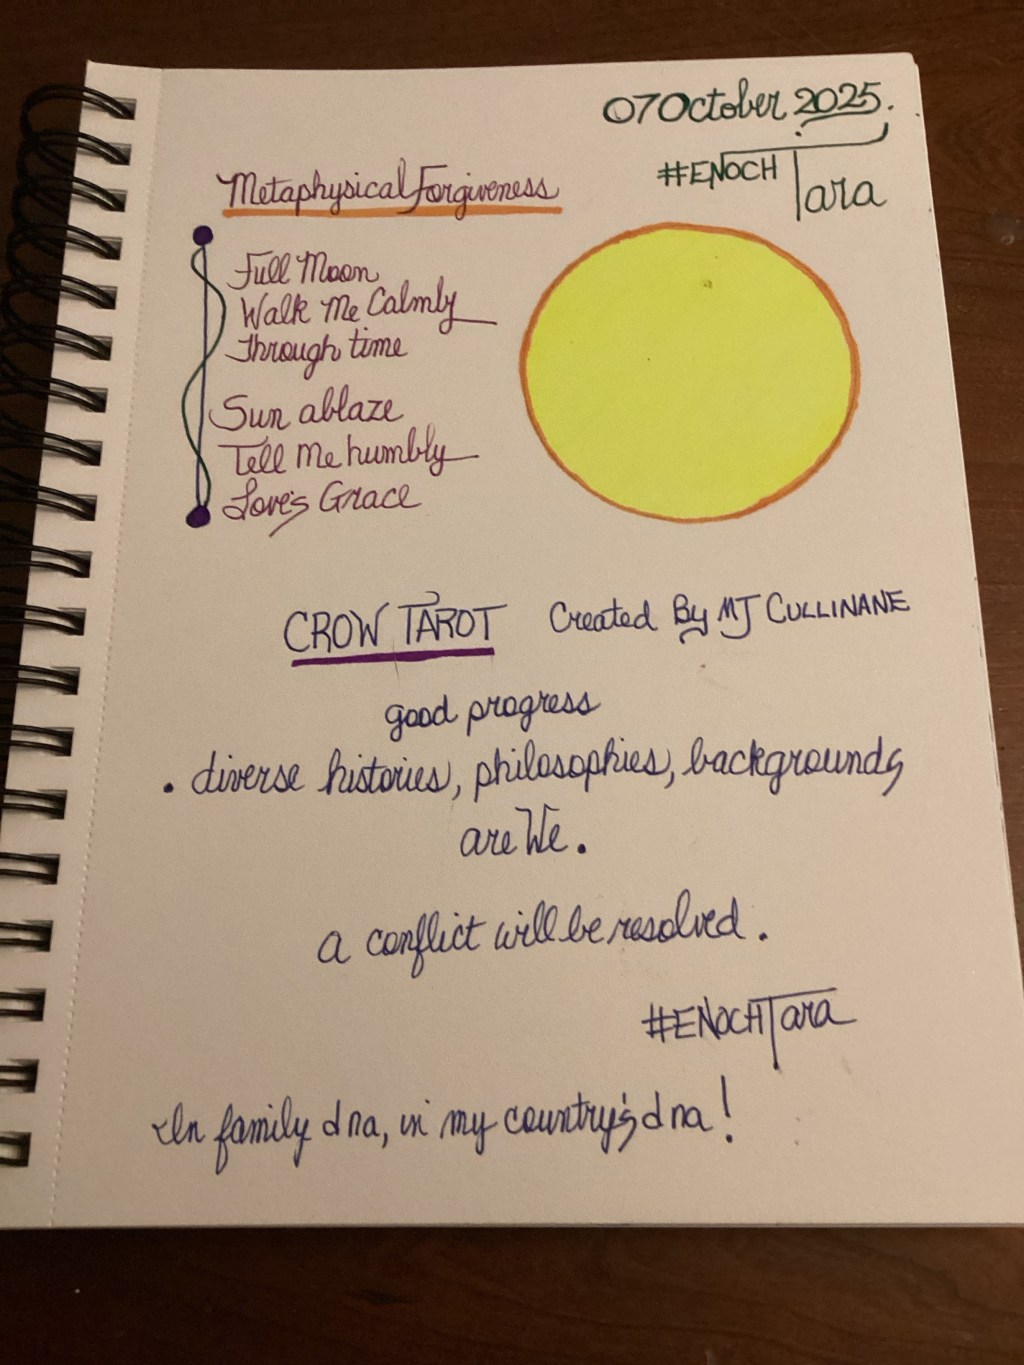 07 October 2025.
#ENOCH Tara
Metaphysical Forgiveness
Full Moon
Walk Me Calmly
Through time
Sun ablaze
Tell Me humbly
Love's Grace
CROW TAROT Created By MJ CULLINANE
good progress
. diverse histories, philosophies, backgrounds
are We.
a conflict will be resolved.
#ENOCHTara
In family dna, in my country's dna!